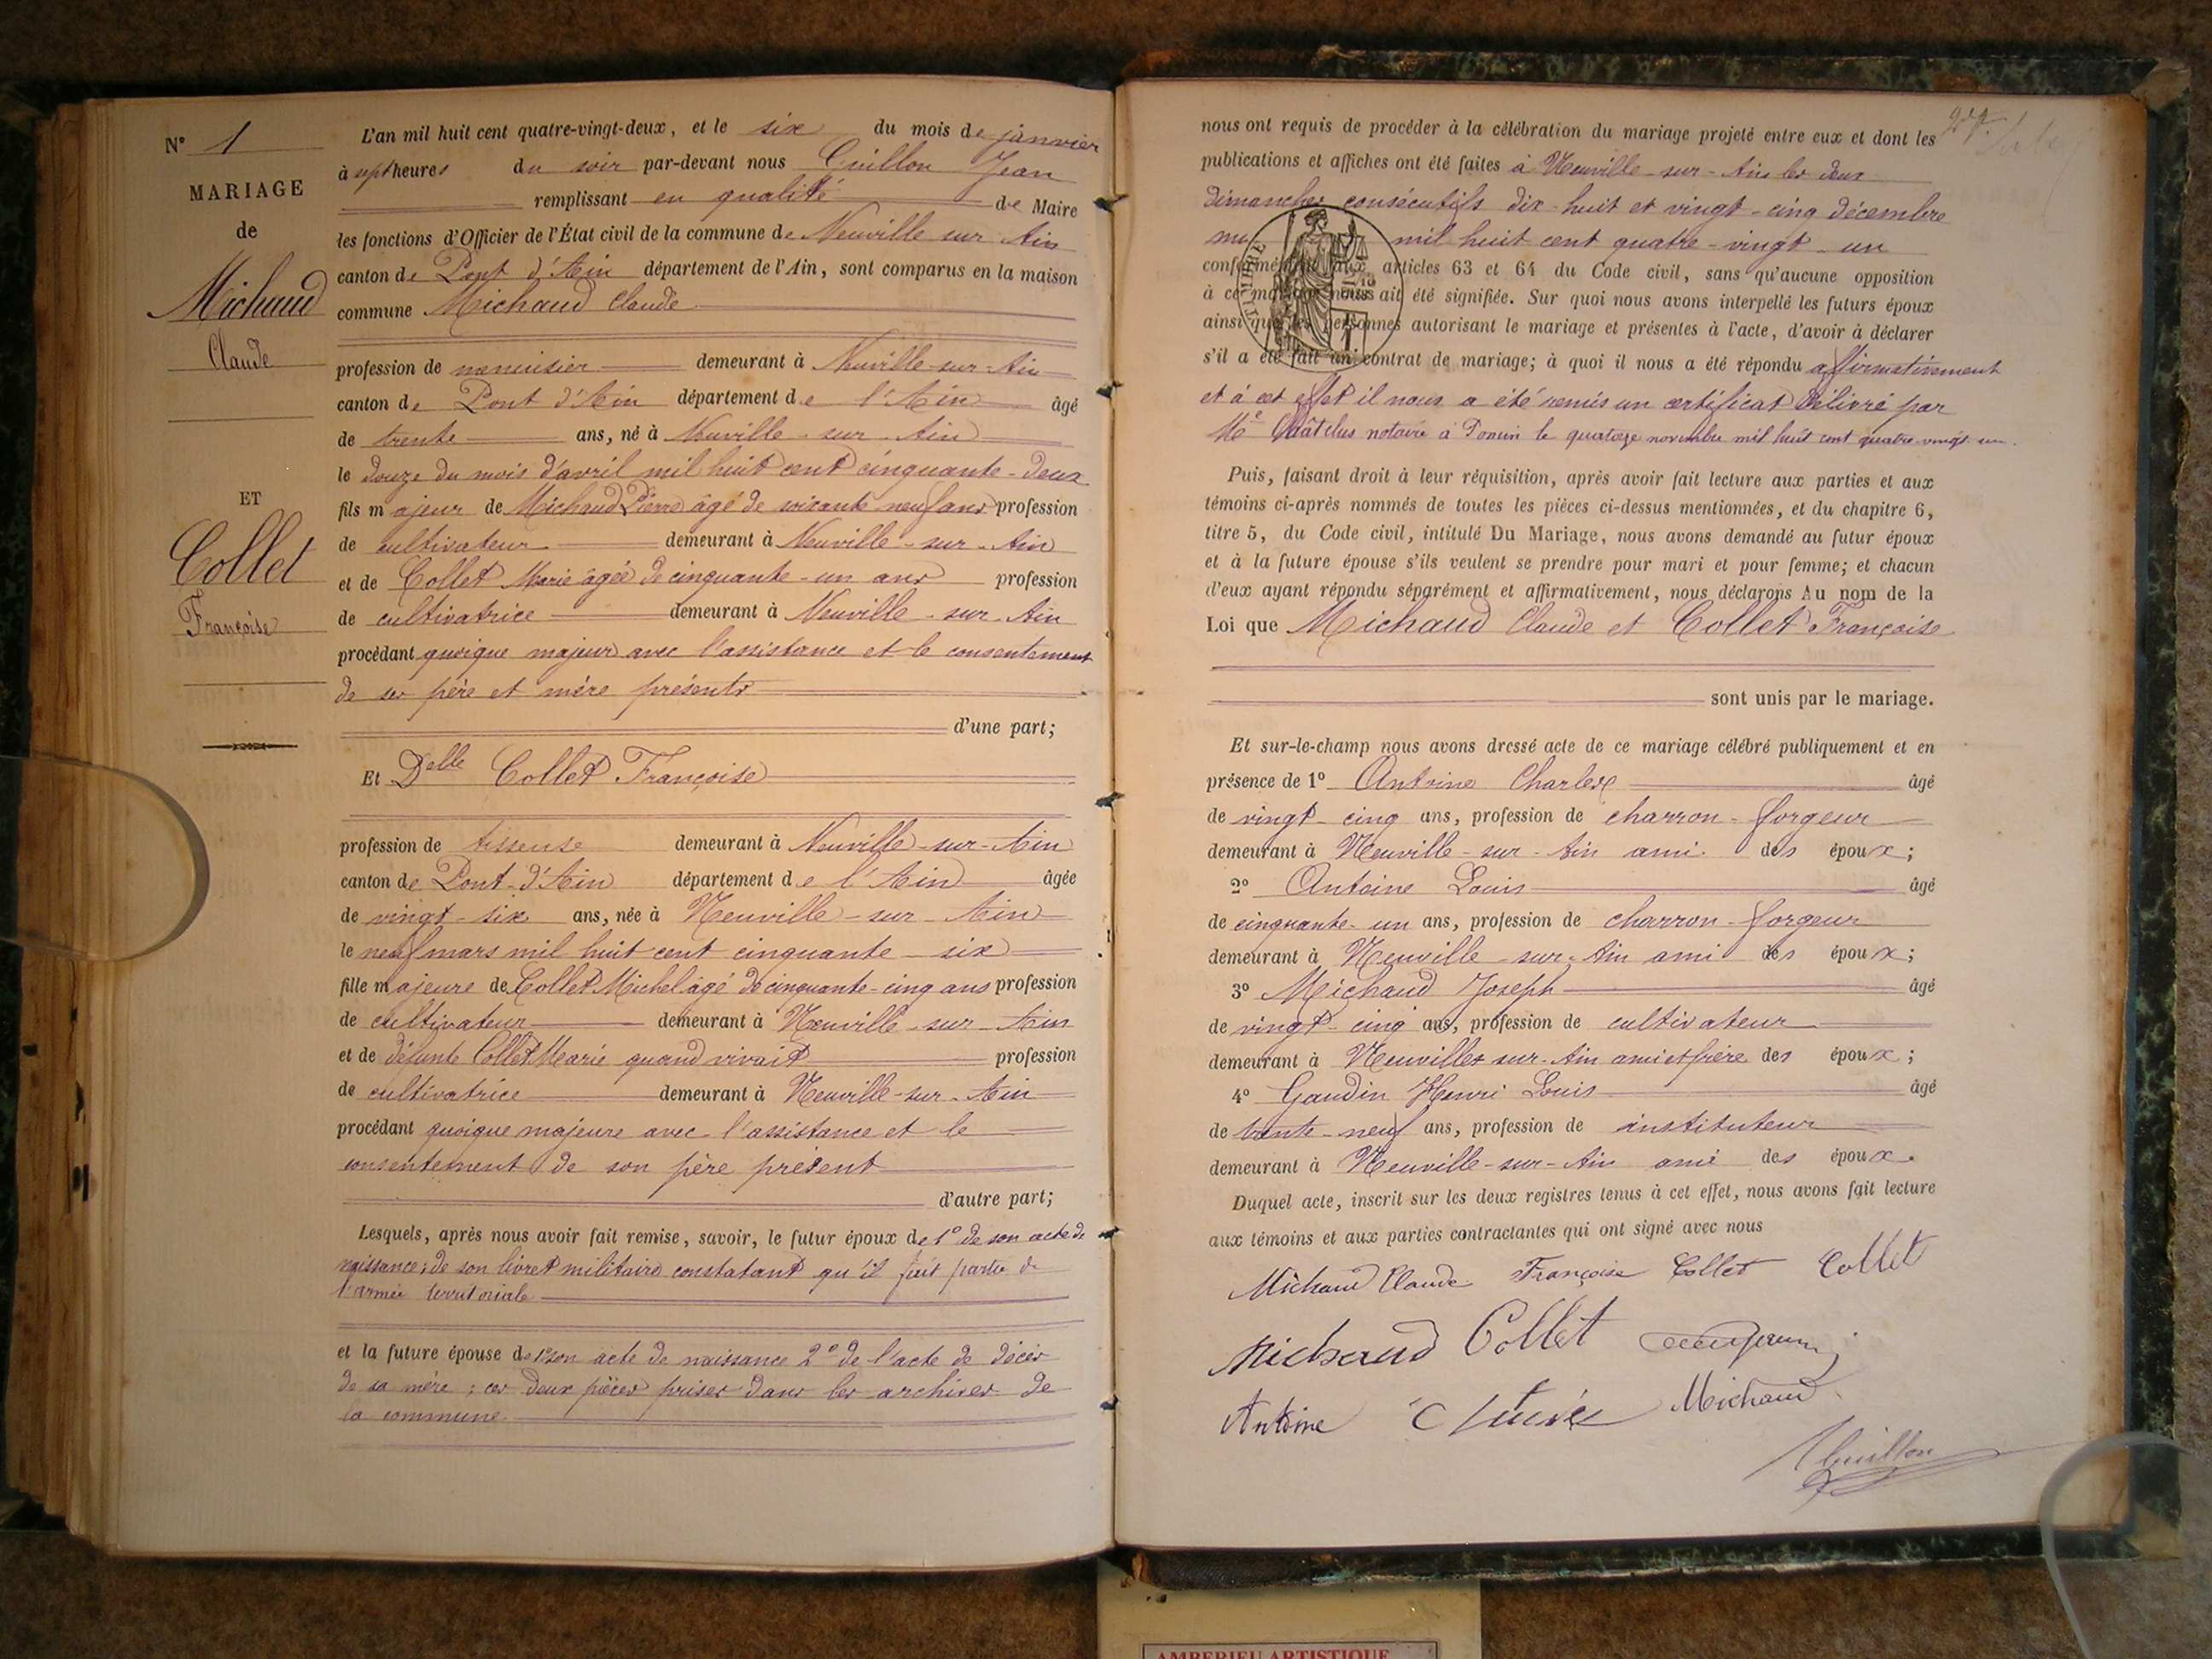 N° 1
MARIAGE
de
Michaud
Claude
ET
Collet
Françoise
L'an mil huit cent quatre-vingt-deux, et le six du mois de janvier
à sept heures du soir par-devant nous Guillon Jean
remplissant en qualité de Maire
les fonctions d'Officier de l'État civil de la commune de Neuville sur Ain
canton de Pont d'Ain département de l'Ain, sont comparus en la maison
commune Michaud Claude
profession de menuisier demeurant à Neuville-sur-Ain
canton de Pont d'Ain département de l'Ain âgé
de trente ans, né à Neuville-sur-Ain
le douze du mois d'avril mil huit cent cinquante-deux
fils majeur de Michaud Pierre âgé de soixante neuf ans profession
de cultivateur demeurant à Neuville-sur-Ain
et de Collet Marie âgée de cinquante-un ans profession
de cultivatrice demeurant à Neuville-sur-Ain
procédant quoique majeur avec l'assistance et le consentement
de ses père et mère présents
d'une part;
Et Delle Collet Françoise
profession de tisseuse demeurant à Neuville-sur-Ain
canton de Pont-d'Ain département de l'Ain âgée
de vingt-six ans, née à Neuville-sur-Ain
le neuf mars mil huit cent cinquante-six
fille majeure de Collet Michel âgé de cinquante-cinq ans profession
de cultivateur demeurant à Neuville-sur-Ain
et de défunte Collet Marie quand vivait profession
de cultivatrice demeurant à Neuville-sur-Ain
procédant quoique majeure avec l'assistance et le
consentement de son père présent
d'autre part;
Lesquels, après nous avoir fait remise, savoir, le futur époux de 1° de son acte de
naissance; de son livret militaire constatant qu'il fait partie de
l'armée territoriale
et la future épouse de 1° son acte de naissance 2° de l'acte de décès
de sa mère; ces deux pièces prises dans les archives de
la commune.
nous ont requis de procéder à la célébration du mariage projeté entre eux et dont les
publications et affiches ont été faites à Neuville-sur-Ain les deux
dimanches consécutifs dix-huit et vingt-cinq décembre
mil huit cent quatre-vingt-un
conformément aux articles 63 et 64 du Code civil, sans qu'aucune opposition
à ce mariage nous ait été signifiée. Sur quoi nous avons interpellé les futurs époux
ainsi que les personnes autorisant le mariage et présentes à l'acte, d'avoir à déclarer
s'il a été fait un contrat de mariage; à quoi il nous a été répondu affirmativement
et à cet effet il nous a été remis un certificat délivré par
Me Châtelus notaire à Poncin le quatorze novembre mil huit cent quatre-vingt-un.
Puis, faisant droit à leur réquisition, après avoir fait lecture aux parties et aux
témoins ci-après nommés de toutes les pièces ci-dessus mentionnées, et du chapitre 6,
titre 5, du Code civil, intitulé Du Mariage, nous avons demandé au futur époux
et à la future épouse s'ils veulent se prendre pour mari et pour femme; et chacun
d'eux ayant répondu séparément et affirmativement, nous déclarons Au nom de la
Loi que Michaud Claude et Collet Françoise
sont unis par le mariage.
Et sur-le-champ nous avons dressé acte de ce mariage célébré publiquement et en
présence de 1° Antoine Charles âgé
de vingt-cinq ans, profession de charron-forgeur
demeurant à Neuville-sur-Ain ami des époux;
2° Antoine Louis âgé
de cinquante-un ans, profession de charron-forgeur
demeurant à Neuville-sur-Ain ami des époux;
3° Michaud Joseph âgé
de vingt-cinq ans, profession de cultivateur
demeurant à Neuville sur-Ain ami et frère des époux;
4° Gaudin Henri Louis âgé
de trente-neuf ans, profession de instituteur
demeurant à Neuville-sur-Ain ami des époux.
Duquel acte, inscrit sur les deux registres tenus à cet effet, nous avons fait lecture
aux témoins et aux parties contractantes qui ont signé avec nous
Michaud Claude Françoise Collet Collet
Michaud Collet
Antoine Michaud
Guillon
AMBERIEU ARTISTIQUE